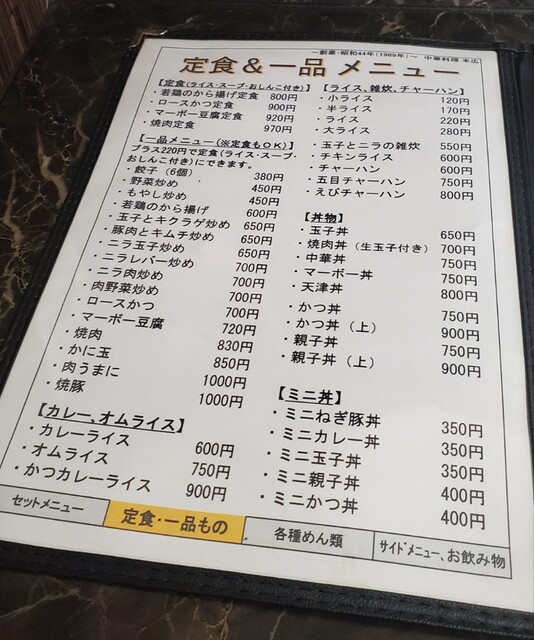 ～創業・昭和44年(1969年)～ 中華料理 末広
定食＆一品 メニュー
【定食(ライス・スープ・おしんこ付き)】
・若鶏のから揚げ定食 800円
・ロースかつ定食 900円
・マーボー豆腐定食 920円
・焼肉定食 970円
【一品メニュー(※定食もOK)】
プラス220円で定食(ライス・スープ・
おしんこ付き)にできます。
・餃子(6個) 380円
・野菜炒め 450円
・もやし炒め 450円
・若鶏のから揚げ 600円
・玉子とキクラゲ炒め 650円
・豚肉とキムチ炒め 650円
・ニラ玉子炒め 650円
・ニラレバー炒め 700円
・ニラ肉炒め 700円
・肉野菜炒め 700円
・ロースかつ 700円
・マーボー豆腐 720円
・焼肉 830円
・かに玉 850円
・肉うまに 1000円
・焼豚 1000円
【カレー、オムライス】
・カレーライス 600円
・オムライス 750円
・かつカレーライス 900円
【ライス、雑炊、チャーハン】
・小ライス 120円
・半ライス 170円
・ライス 220円
・大ライス 280円
・玉子とニラの雑炊 550円
・チキンライス 600円
・チャーハン 600円
・五目チャーハン 750円
・えびチャーハン 800円
【丼物】
・玉子丼 650円
・焼肉丼(生玉子付き) 700円
・中華丼 750円
・マーボー丼 750円
・天津丼 800円
・かつ丼 750円
・かつ丼(上) 900円
・親子丼 750円
・親子丼(上) 900円
【ミニ丼】
・ミニねぎ豚丼 350円
・ミニカレー丼 350円
・ミニ玉子丼 350円
・ミニ親子丼 400円
・ミニかつ丼 400円
セットメニュー
定食・一品もの
各種めん類
サイドメニュー、お飲み物